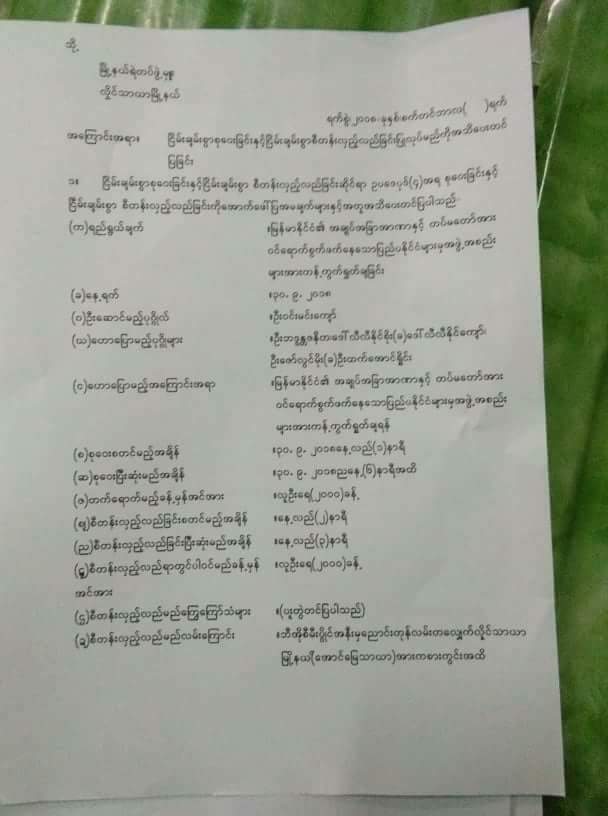 သို့
မြို့နယ်ရဲတပ်ဖွဲ့မှူး
လှိုင်သာယာမြို့နယ်
ရက်စွဲ၊၂၀၁၈ ခုနှစ်၊စက်တင်ဘာလ( )ရက်
အကြောင်းအရာ။ ငြိမ်းချမ်းစွာစုဝေးခြင်းနှင့်ငြိမ်းချမ်းစွာစီတန်းလှည့်လည်ခြင်းပြုလုပ်မည်ကိုအသိပေးတင်
ပြခြင်း
၁။ ငြိမ်းချမ်းစွာစုဝေးခြင်းနှင့်ငြိမ်းချမ်းစွာ စီတန်းလှည့်လည်ခြင်းဆိုင်ရာ ဥပဒေပုဒ်(၄)အရ စုဝေးခြင်းနှင့်
ငြိမ်းချမ်းစွာ စီတန်းလှည့်လည်ခြင်းကိုအောက်ဖေါ်ပြအချက်များနှင့်အတူအသိပေးတင်ပြပါသည်-
(က)ရည်ရွယ်ချက် ။မြန်မာနိုင်ငံ၏ အချုပ်အခြာအာဏာနှင့် တပ်မတော်အား
ဝင်ရောက်စွက်ဖက်နေသောပြည်ပနိုင်ငံများမှအဖွဲ့အစည်း
များအားကန့်ကွက်ရှုတ်ချခြင်း
(ခ)နေ့ရက် ။၃၀. ၉. ၂၀၁၈
(ဂ)ဦးဆောင်မည့်ပုဂ္ဂိုလ် ။ဦးဝင်းမင်းကျော်
(ဃ)ဟောပြောမည့်ပုဂ္ဂိုလ်များ ။ဦးဘဒ္ဒန္တဇနိတ၊ဒေါ်လီလီနိုင်စိုး(ခ)ဒေါ်လီလီနိုင်ကျော်၊
ဦးဇော်လွင်မိုး(ခ)ဦးထက်အောင်ရှိုင်း
(င)ဟောပြောမည့်အကြောင်းအရာ ။မြန်မာနိုင်ငံ၏ အချုပ်အခြာအာဏာနှင့် တပ်မတော်အား
ဝင်ရောက်စွက်ဖက်နေသောပြည်ပနိုင်ငံများမှအဖွဲ့အစည်း
များအားကန့်ကွက်ရှုတ်ချရန်
(စ)စုဝေးစတင်မည့်အချိန် ။၃၀. ၉. ၂၀၁၈နေ့လည်(၁)နာရီ
(ဆ)စုဝေးပြီးဆုံးမည့်အချိန် ။၃၀. ၉. ၂၀၁၈ညနေ့(၆)နာရီအထိ
(ဇ)တက်ရောက်မည့်ခန့်မှန်အင်အား ။လူဦးရေ(၂၀၀၀)ခန့်
(ဈ)စီတန်းလှည့်လည်ခြင်းစတင်မည့်အချိန် ။နေ့လည်(၂)နာရီ
(ည)စီတန်းလှည့်လည်ခြင်းပြီးဆုံးမည့်အချိန် ။နေ့လည်(၃)နာရီ
(ဋ)စီတန်းလှည့်လည်ရာတွင်ပါဝင်မည့်ခန့်မှန် ။လူဦးရေ(၂၀၀၀)ခန့်
အင်အား
(ဌ)စီတန်းလှည့်လည်မည့်ကြွေးကြော်သံများ ။(ပူးတွဲတင်ပြပါသည်)
(ဍ)စီတန်းလှည့်လည်မည့်လမ်းကြောင်း ။ဘီအိုစီမီးပွိုင့်အနီးမှညောင်းတုန်လမ်းတလျှောက်လှိုင်သာယာ
မြို့နယ်(အောင်မြေသာယာ)အားကစားကွင်းအထိ